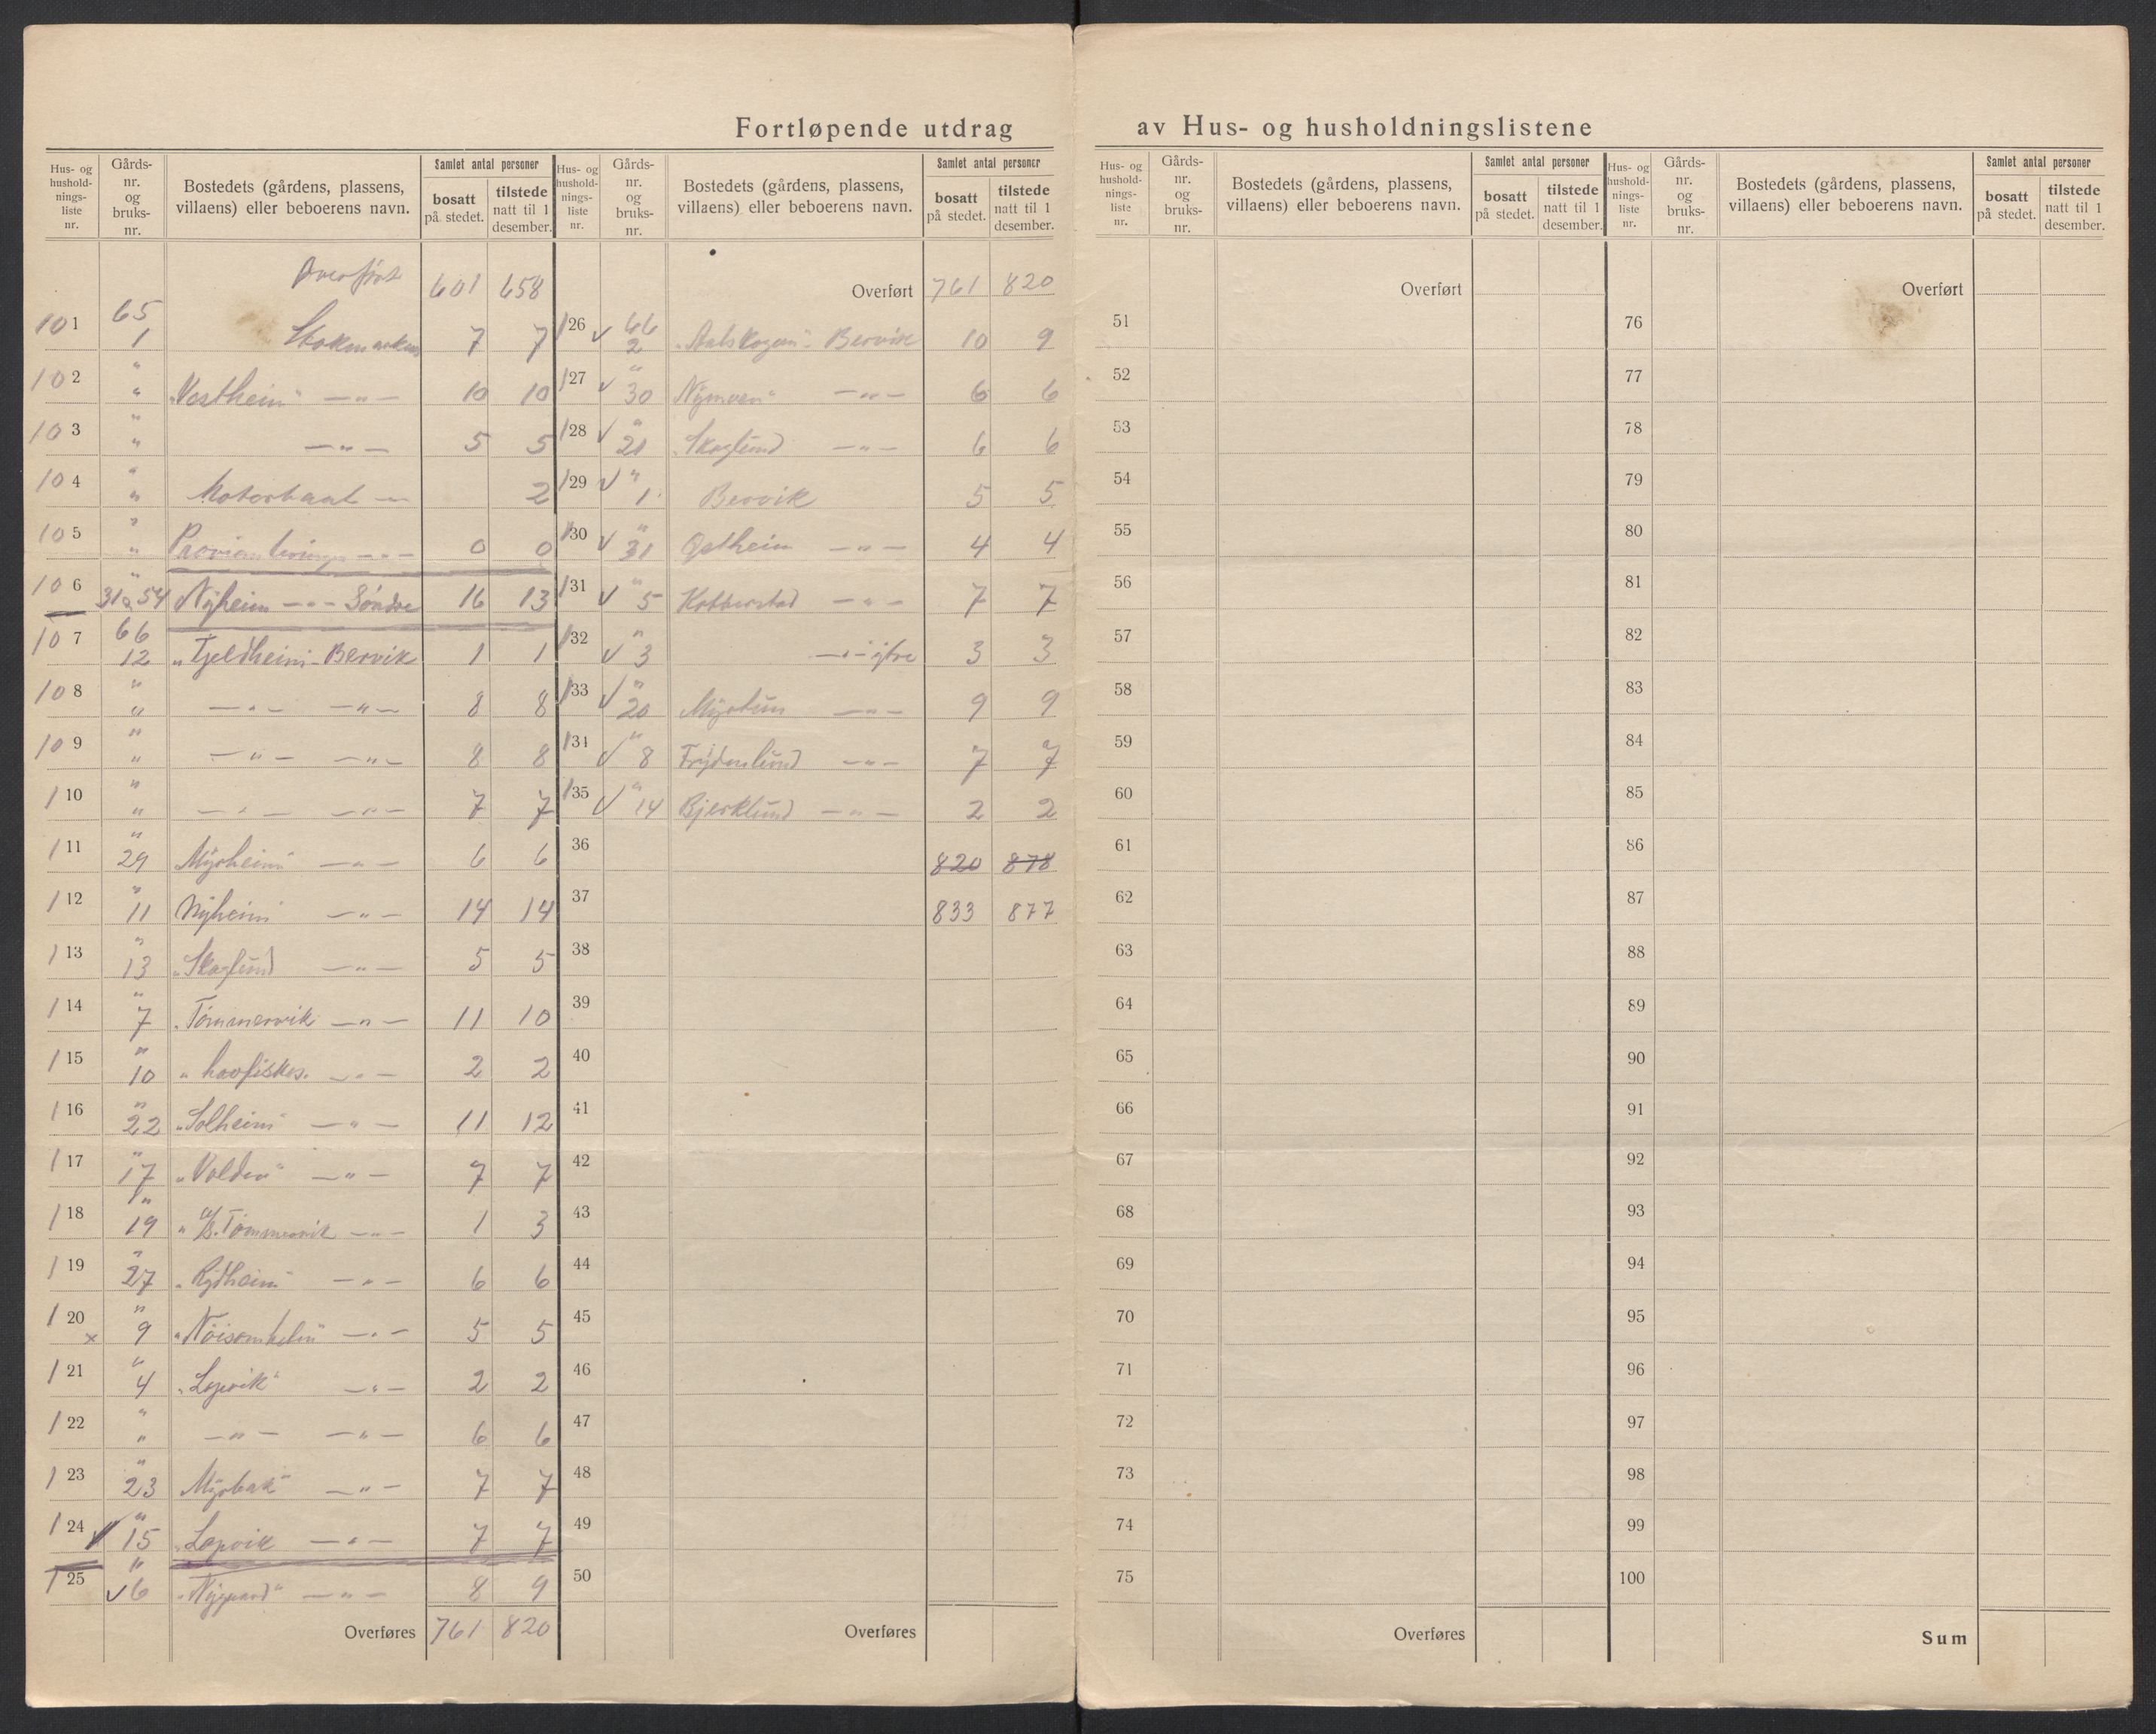 Fortløpende utdrag av Hus- og husholdningslistene
Hus- og hushold-nings-liste nr. | Gårds-nr. og bruks-nr. | Bostedets (gårdens, plassens, villaens) eller beboerens navn. | Samlet antal personer | bosatt på stedet. | tilstede natt til 1 desember.
Overført 601 658
101 65 1 Stokmarknes 7 7
102 " " "Vestheim" —"— 10 10
103 " " —"— 5 5
104 " " Motorbaat —"— 2
105 " " —"— 0 0
106 " 31a 54 Nyheim —"— Söndre 16 13
107 66 12 "Fjeldheim" Bervik 1 1
108 " " —"— —"— 8 8
109 " " —"— —"— 8 8
110 " " —"— —"— 7 7
111 " 29 Myrheim" —"— 6 6
112 " 11 Nyheim" —"— 14 14
113 " 13 "Skoglund —"— 5 5
114 " 7 "Tömmervik —"— 11 10
115 " 10 " havfiskes. —"— 2 2
116 " 22 "Solheim" —"— 11 12
117 " 17 "Volden" —"— 7 7
118 " 19 " Tömmervik —"— 1 3
119 " 27 "Rydheim" —"— 6 6
120 x " 9 "Nöisomheden" —"— 5 5
121 " 4 "Lapvik" —"— 2 2
122 " " —"— —"— 6 6
123 " 23 Myrbak" —"— 7 7
124 " 15 "Lapvik —"— 7 7
125 " 6 "Nygaard" —"— 8 9
Overføres 761 820
Hus- og hushold-nings-liste nr. | Gårds-nr. og bruks-nr. | Bostedets (gårdens, plassens, villaens) eller beboerens navn. | Samlet antal personer | bosatt på stedet. | tilstede natt til 1 desember.
Overført 761 820
126 66 2 Bervik 10 9
127 " 30 Nymoen" —"— 6 6
128 " 21 "Skoglund —"— 6 6
129 " 1 Bervik 5 5
130 " 31 Östheim —"— 4 4
131 " 5 Kobberstad —"— 7 7
132 " 3 —"— ytre 3 3
133 " 20 Myrtun —"— 9 9
134 " 8 Frydenlund —"— 7 7
135 " 14 Bjerklund —"— 2 2
36 820 878
37 833 877
38
39
40
41
42
43
44
45
46
47
48
49
50
Overføres
Hus- og hushold-nings-liste nr. | Gårds-nr. og bruks-nr. | Bostedets (gårdens, plassens, villaens) eller beboerens navn. | Samlet antal personer | bosatt på stedet. | tilstede natt til 1 desember.
Overført
51
52
53
54
55
56
57
58
59
60
61
62
63
64
65
66
67
68
69
70
71
72
73
74
75
Overføres
Hus- og hushold-nings-liste nr. | Gårds-nr. og bruks-nr. | Bostedets (gårdens, plassens, villaens) eller beboerens navn. | Samlet antal personer | bosatt på stedet. | tilstede natt til 1 desember.
Overført
76
77
78
79
80
81
82
83
84
85
86
87
88
89
90
91
92
93
94
95
96
97
98
99
100
Sum